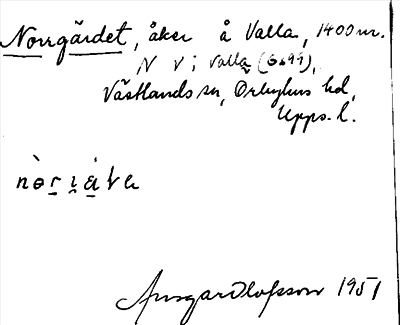 Norrgärdet, åker å Valla, 1400 m.
N V i Valla (Gs 99),
Västlands sn, Örbyhus hd,
Upps. l.
Ansgar Olofsson 1951